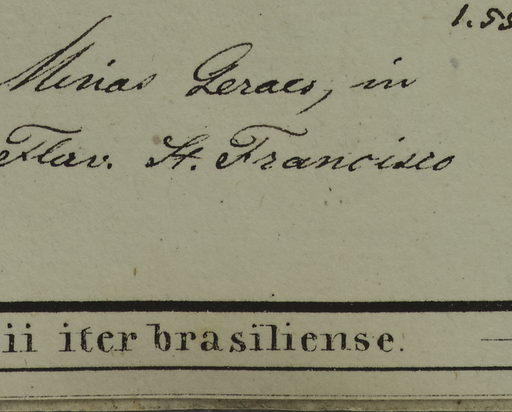 1.55
Minas Geraes, in
Flav. St. Francisco
ii iter brasiliense.